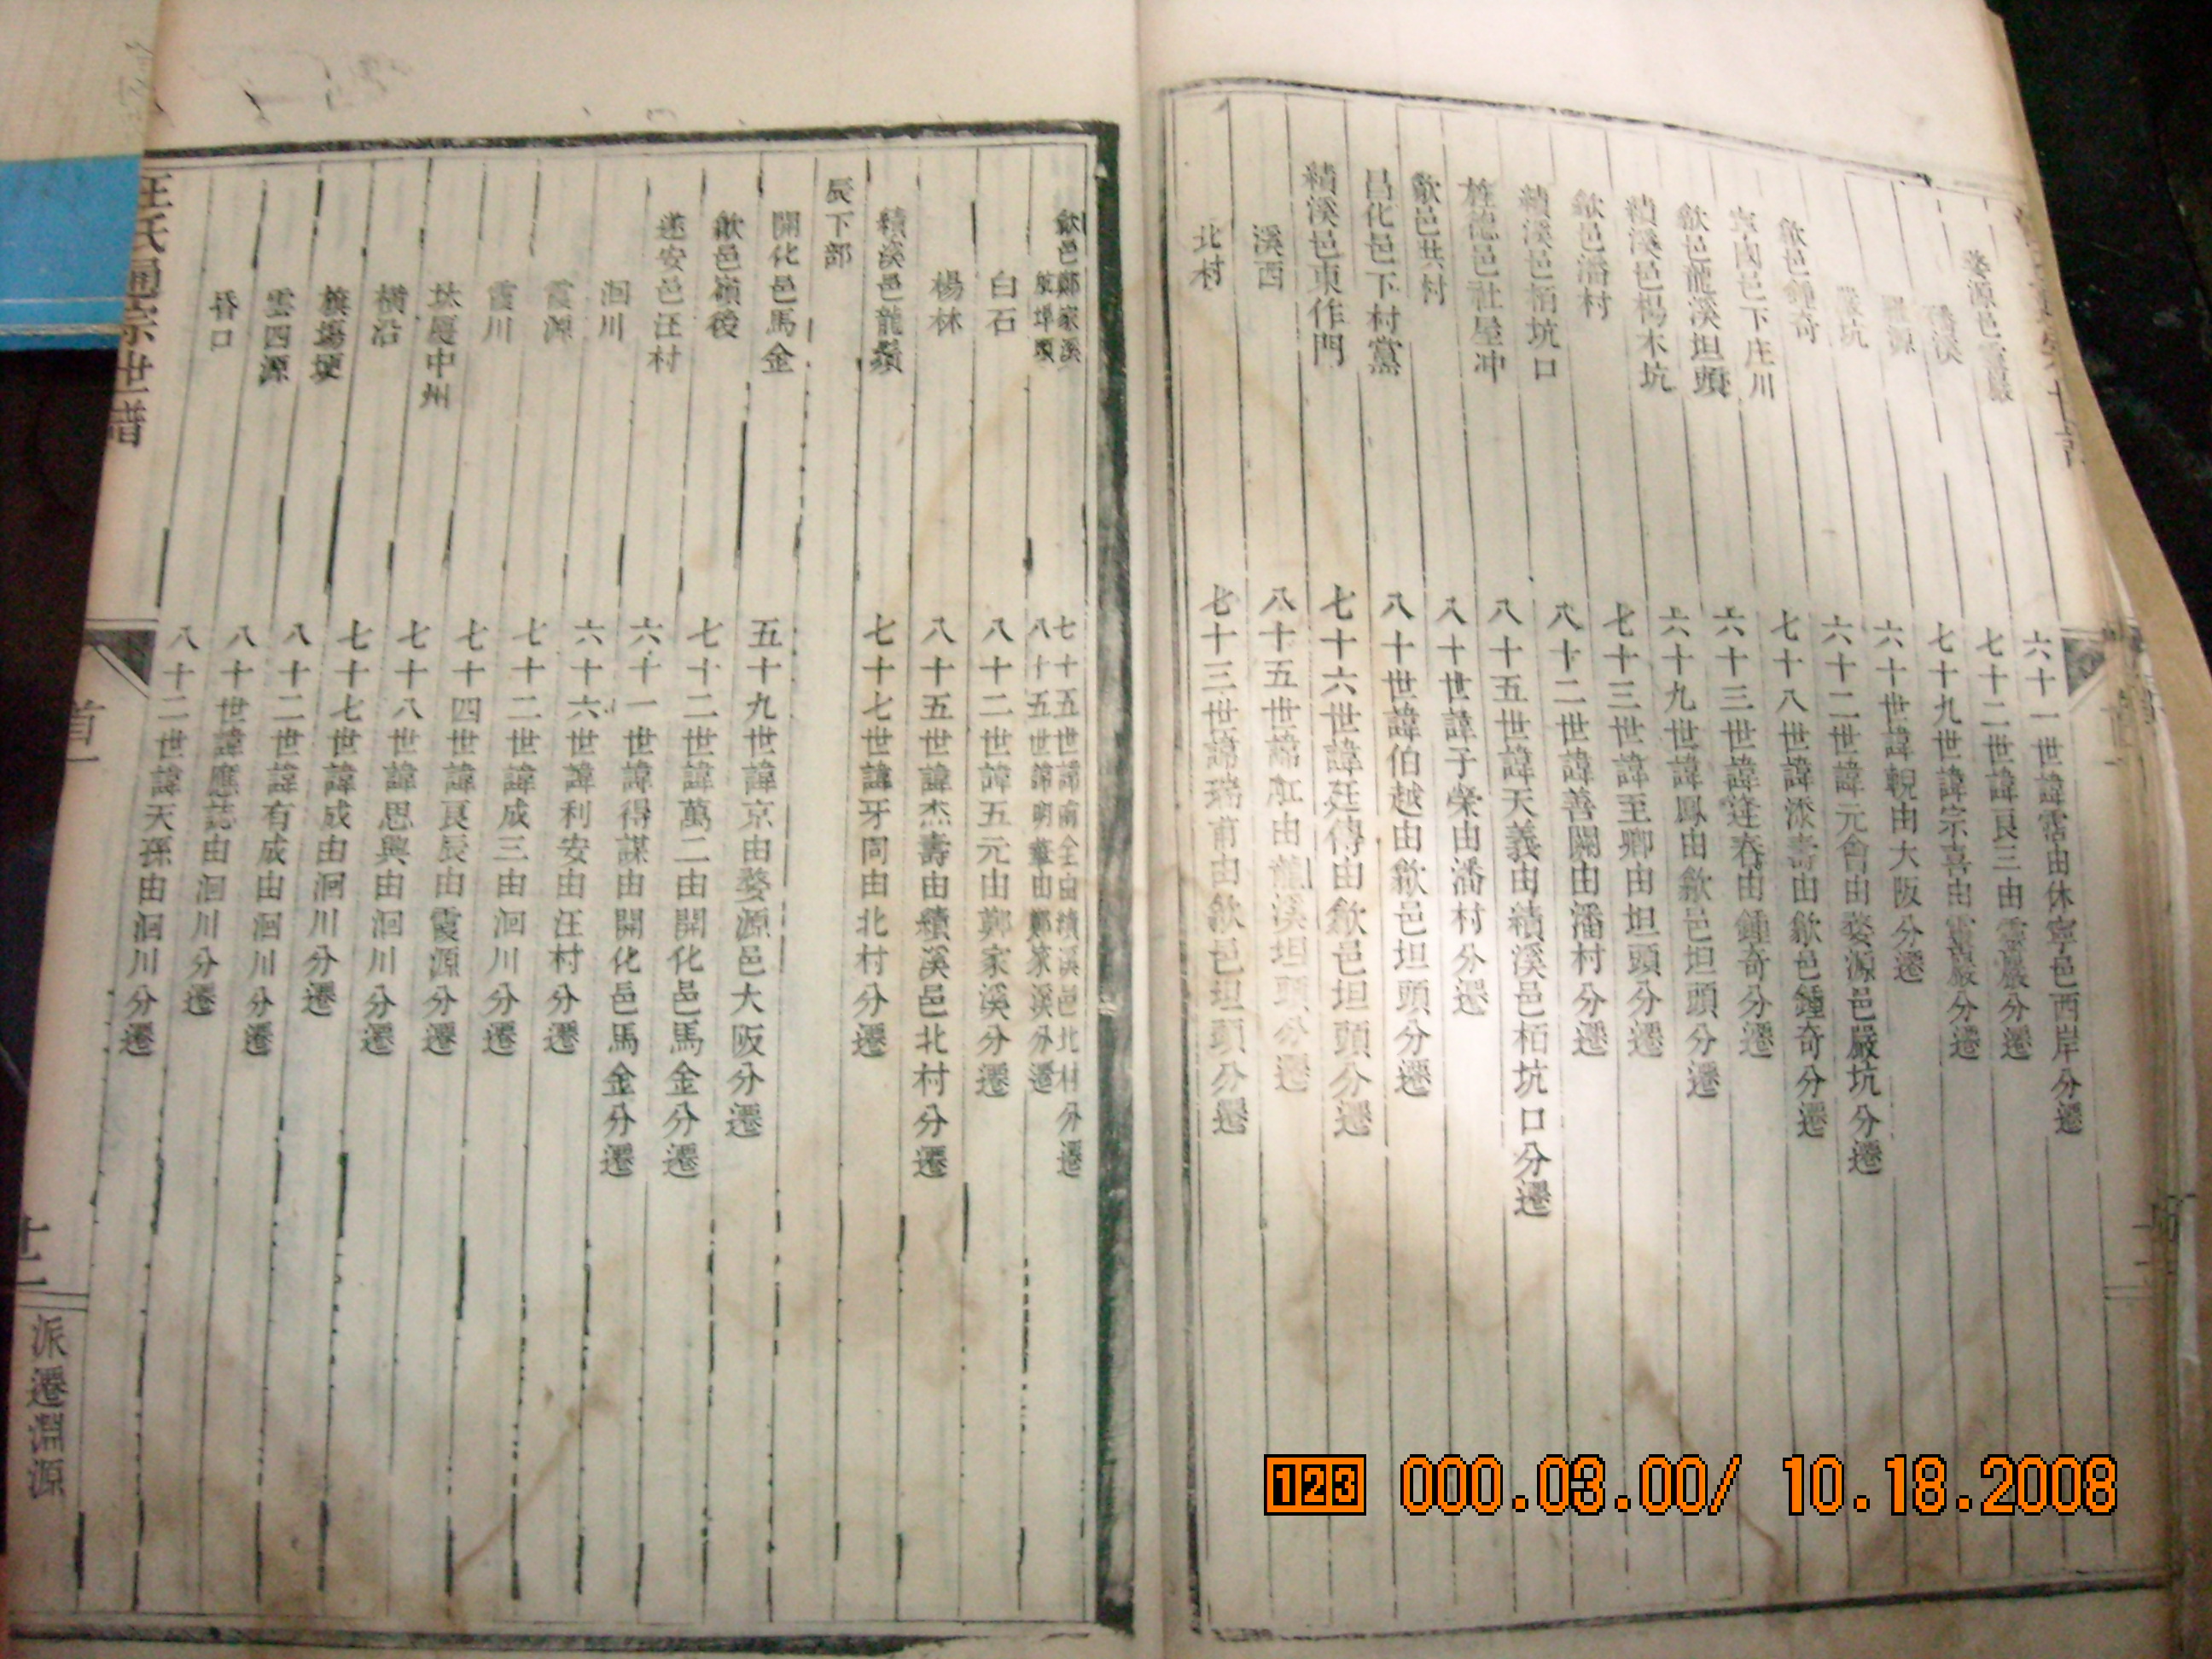 婺源邑靈巖　六十一世諱常由休寧邑西岸分遷
七十二世諱良三由靈巖分遷
七十九世諱宗喜由靈巖分遷
羅源　六十世諱親由大阪分遷
嚴坑　六十二世諱元會由婺源邑嚴坑分遷
歙邑鍾奇　七十八世諱添壽由歙邑鍾奇分遷
寧國邑下庄川　六十三世諱逢春由鍾奇分遷
歙邑龍溪坦頭　六十九世諱鳳由歙邑坦頭分遷
績溪邑楊木坑　七十三世諱至卿由坦頭分遷
歙邑潘村　八十二世諱善開由潘村分遷
績溪邑栢坑口　八十五世諱天義由績溪邑栢坑口分遷
旌德邑社屋冲　八十世諱子榮由潘村分遷
歙邑洪村　八十世諱伯越由歙邑坦頭分遷
昌化邑下村黨　七十六世諱廷傳由歙邑坦頭分遷
績溪邑東作門　八十五世諱肛由龍溪坦頭分遷
溪西　七十三世諱瑞甫由歙邑坦頭分遷
北村
歙邑鄭家溪　七十五世諱南全由績溪邑北村分遷
埠頭　八十五世諱明華由鄭家溪分遷
白石　八十二世諱五元由鄭家溪分遷
楊林　八十五世諱杰壽由績溪邑北村分遷
績溪邑龍鬚　七十七世諱牙同由北村分遷
辰下部
開化邑馬金　五十九世諱京由婺源邑大阪分遷
歙邑嶺後　七十二世諱萬二由開化邑馬金分遷
遂安邑汪村　六十一世諱得謀由開化邑馬金分遷
洄川　六十六世諱利安由汪村分遷
霞源　七十二世諱成三由洄川分遷
霞川　七十四世諱良辰由霞源分遷
厦中州　七十八世諱思興由洄川分遷
橫沿　七十七世諱成由洄川分遷
塲埂　八十二世諱有成由洄川分遷
雲四源　八十世諱應誌由洄川分遷
昏口　八十二世諱天孫由洄川分遷
汪氏通宗世譜
首一
十二
派遷淵源
123 000.03.00/ 10.18.2008